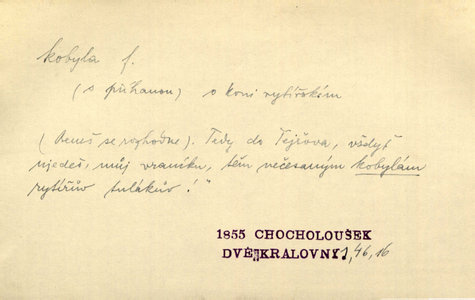 kobyla f.
(s příhanou) o koni rytířském
(Beneš se rozhodne). Tedy do Tejřova, vždyť
ujedeš, můj vraníku, těm nečesaným kobylám
rytířův tulákův!"
1855 CHOCHOLOUŠEK
DVĚ KRALOVNY 1,46,16